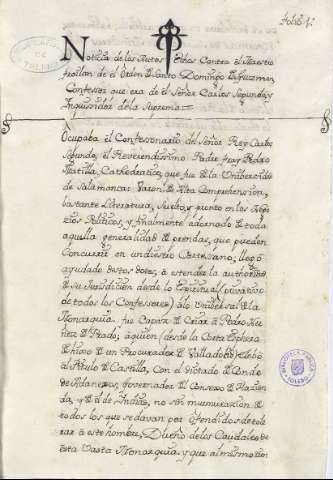 folio 1.
Noticia de los Autos echos Contra el Maestro
froilan de el Orden de Santo Domingo de Guzman,
Confessor que era de el Señor Carlos Segundo, y
Inquisidor de la Suprema
Ocupaba el Confessonario del Señor Rey Carlos
Segundo, el Reverendissimo Padre fray Pedro
Matilla, Cathedratico, que fue de la Universidad
de Salamanca: Varon de Alta Comprehension,
bastante Literatura, Suelto, y pronto en los Nego
zios Politicos, y finalmente adornado de toda
aquella generalidad de prendas, que pueden
Concurrir en un diestro Cortesano; llegó
ayudado destos dotes, a estender la authoridad
de su Jurisdicion desde lo Espiritual (privativo
de todos los Confessores) à lo Universal de la
Monarquia: fue Capaz de Criar à Pedro Nu
ñez de Prado; a quien (desde la Corta Esphera
de hijo de un Procurador de Valladolid) elebó
al Titulo de Castilla, con el dictado de Conde
de Adanero; Governador de el Consexo de Hazien
da, y de el de Indias, no sin murmuracion de
todos los que se davan por ofendidos de tole
rar a este hombre, Dueño de los Caudales de
esta Vasta Monarquia, y que al mismo tiem
BIBLIOTECA PUBLICA
TOLEDO